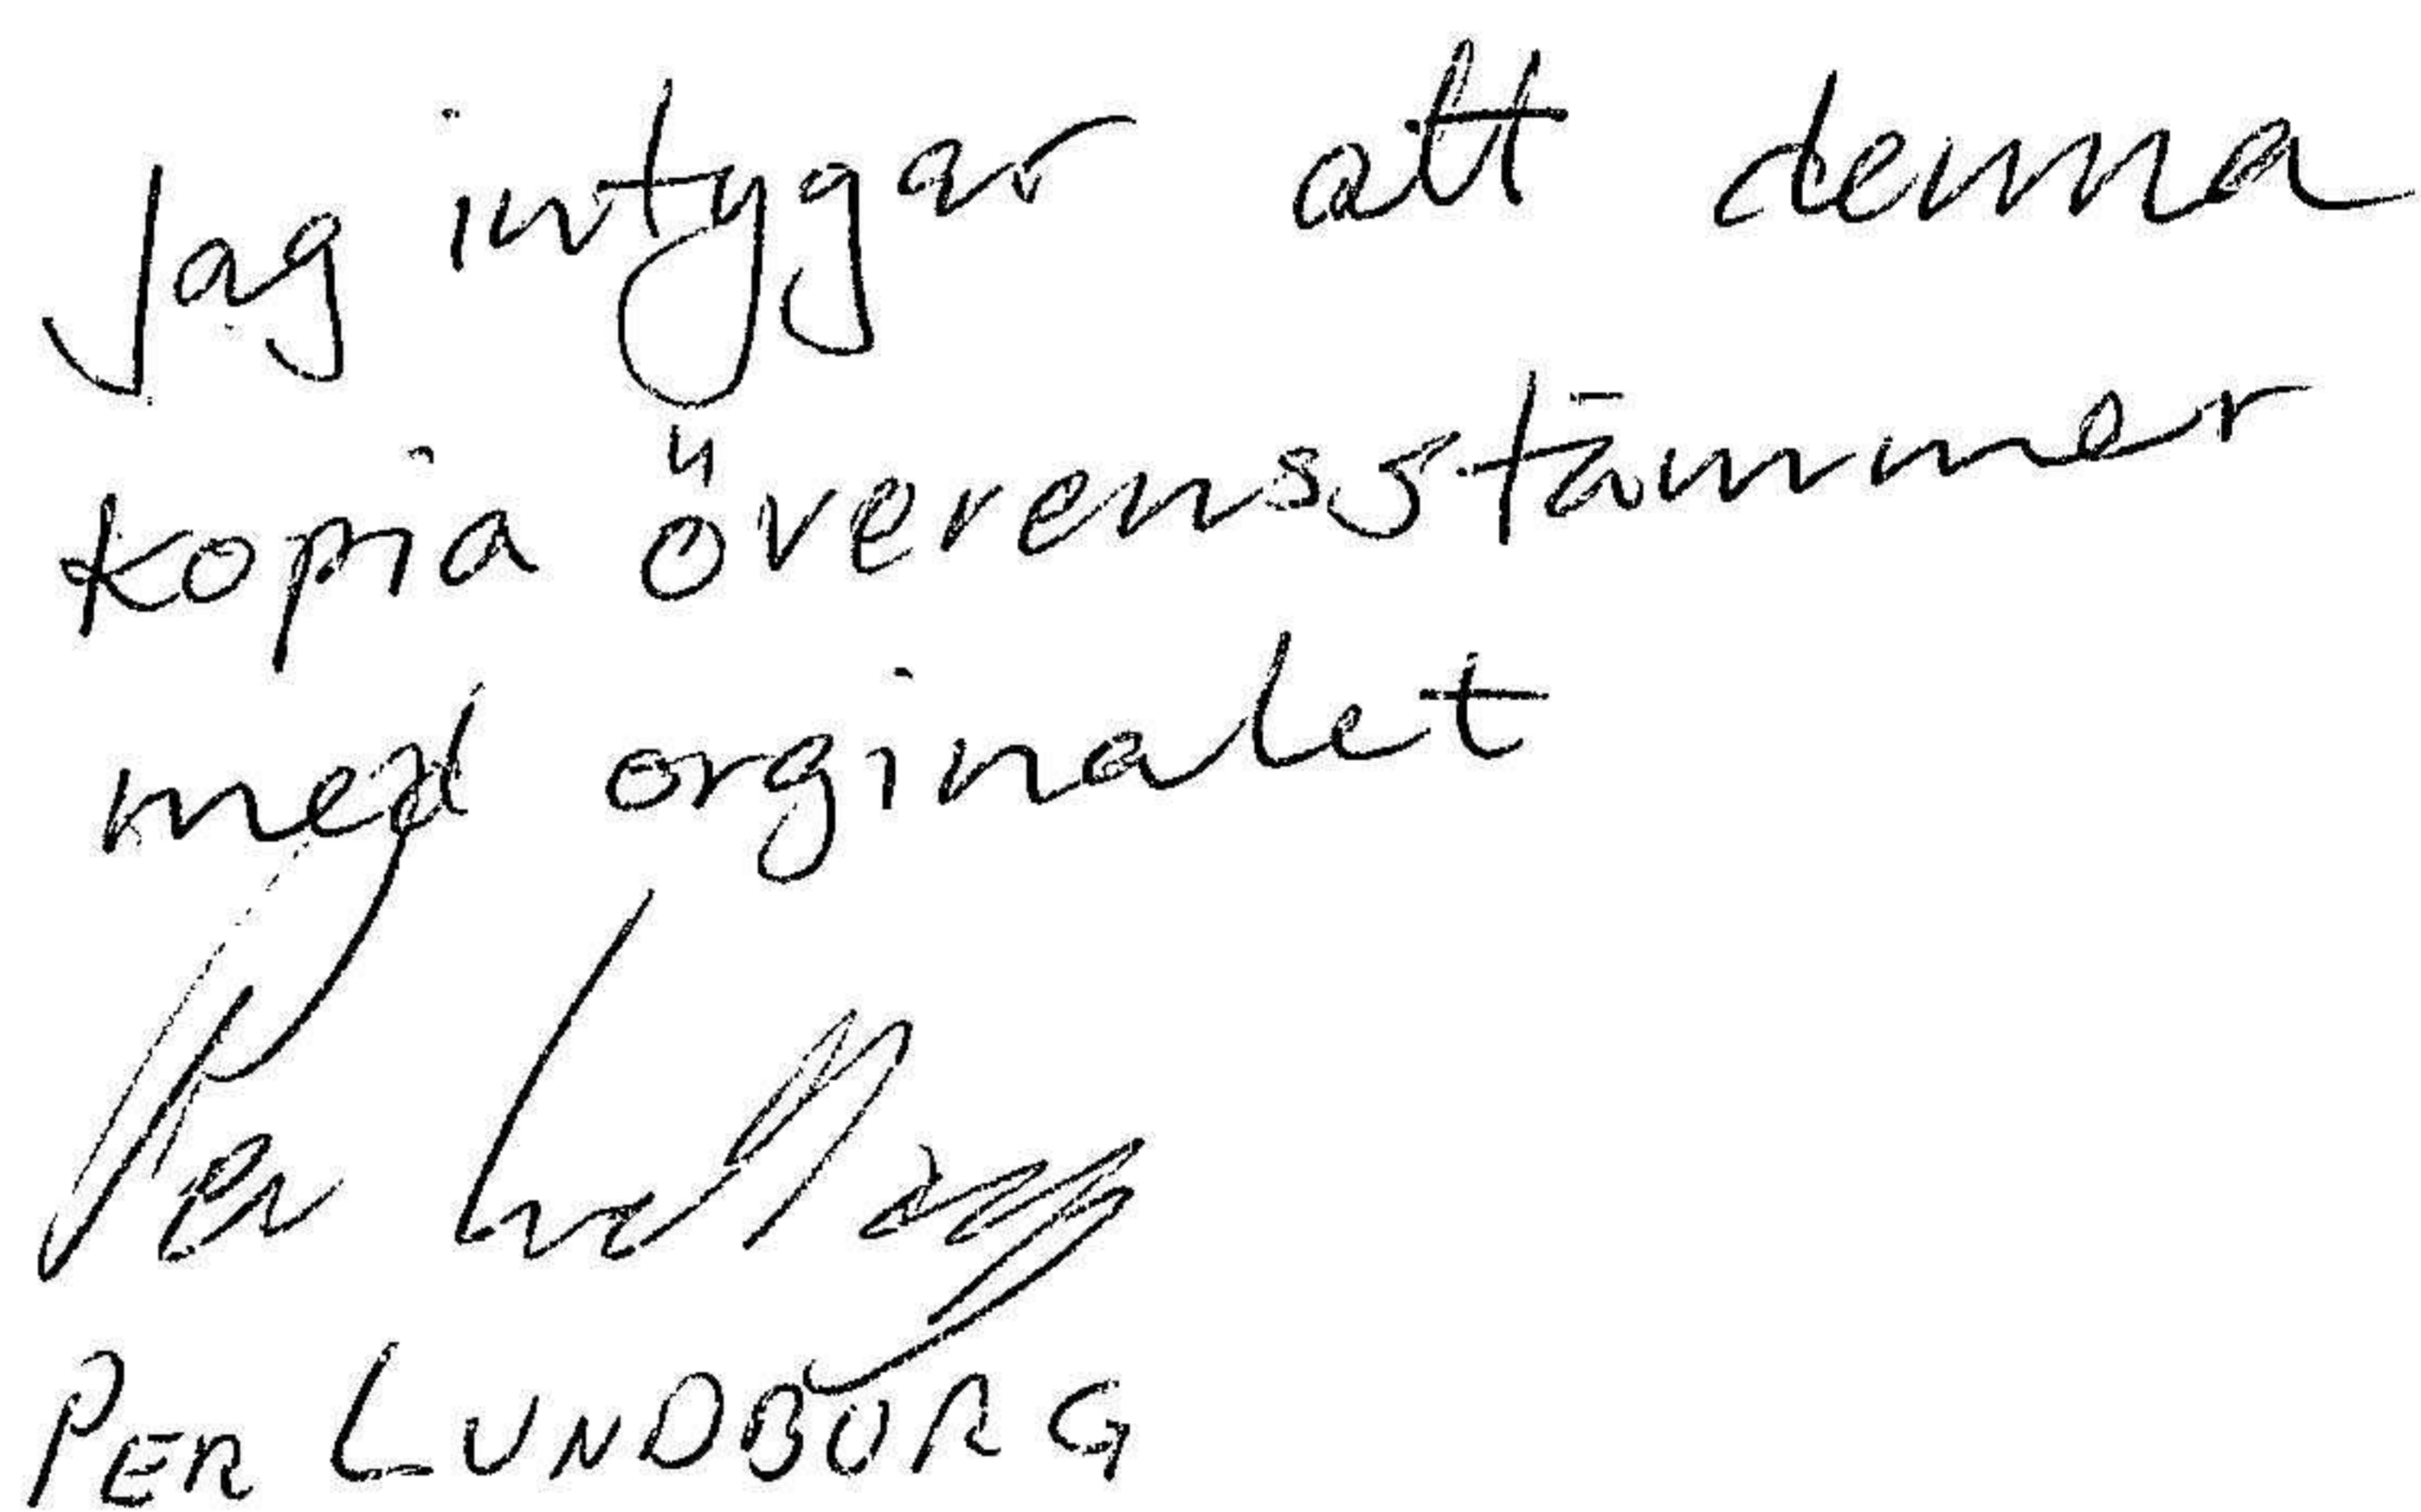 Jag intygar att denna
kopia överensstämmer
med orginalet
Per Lundborg
PER LUNDBORG